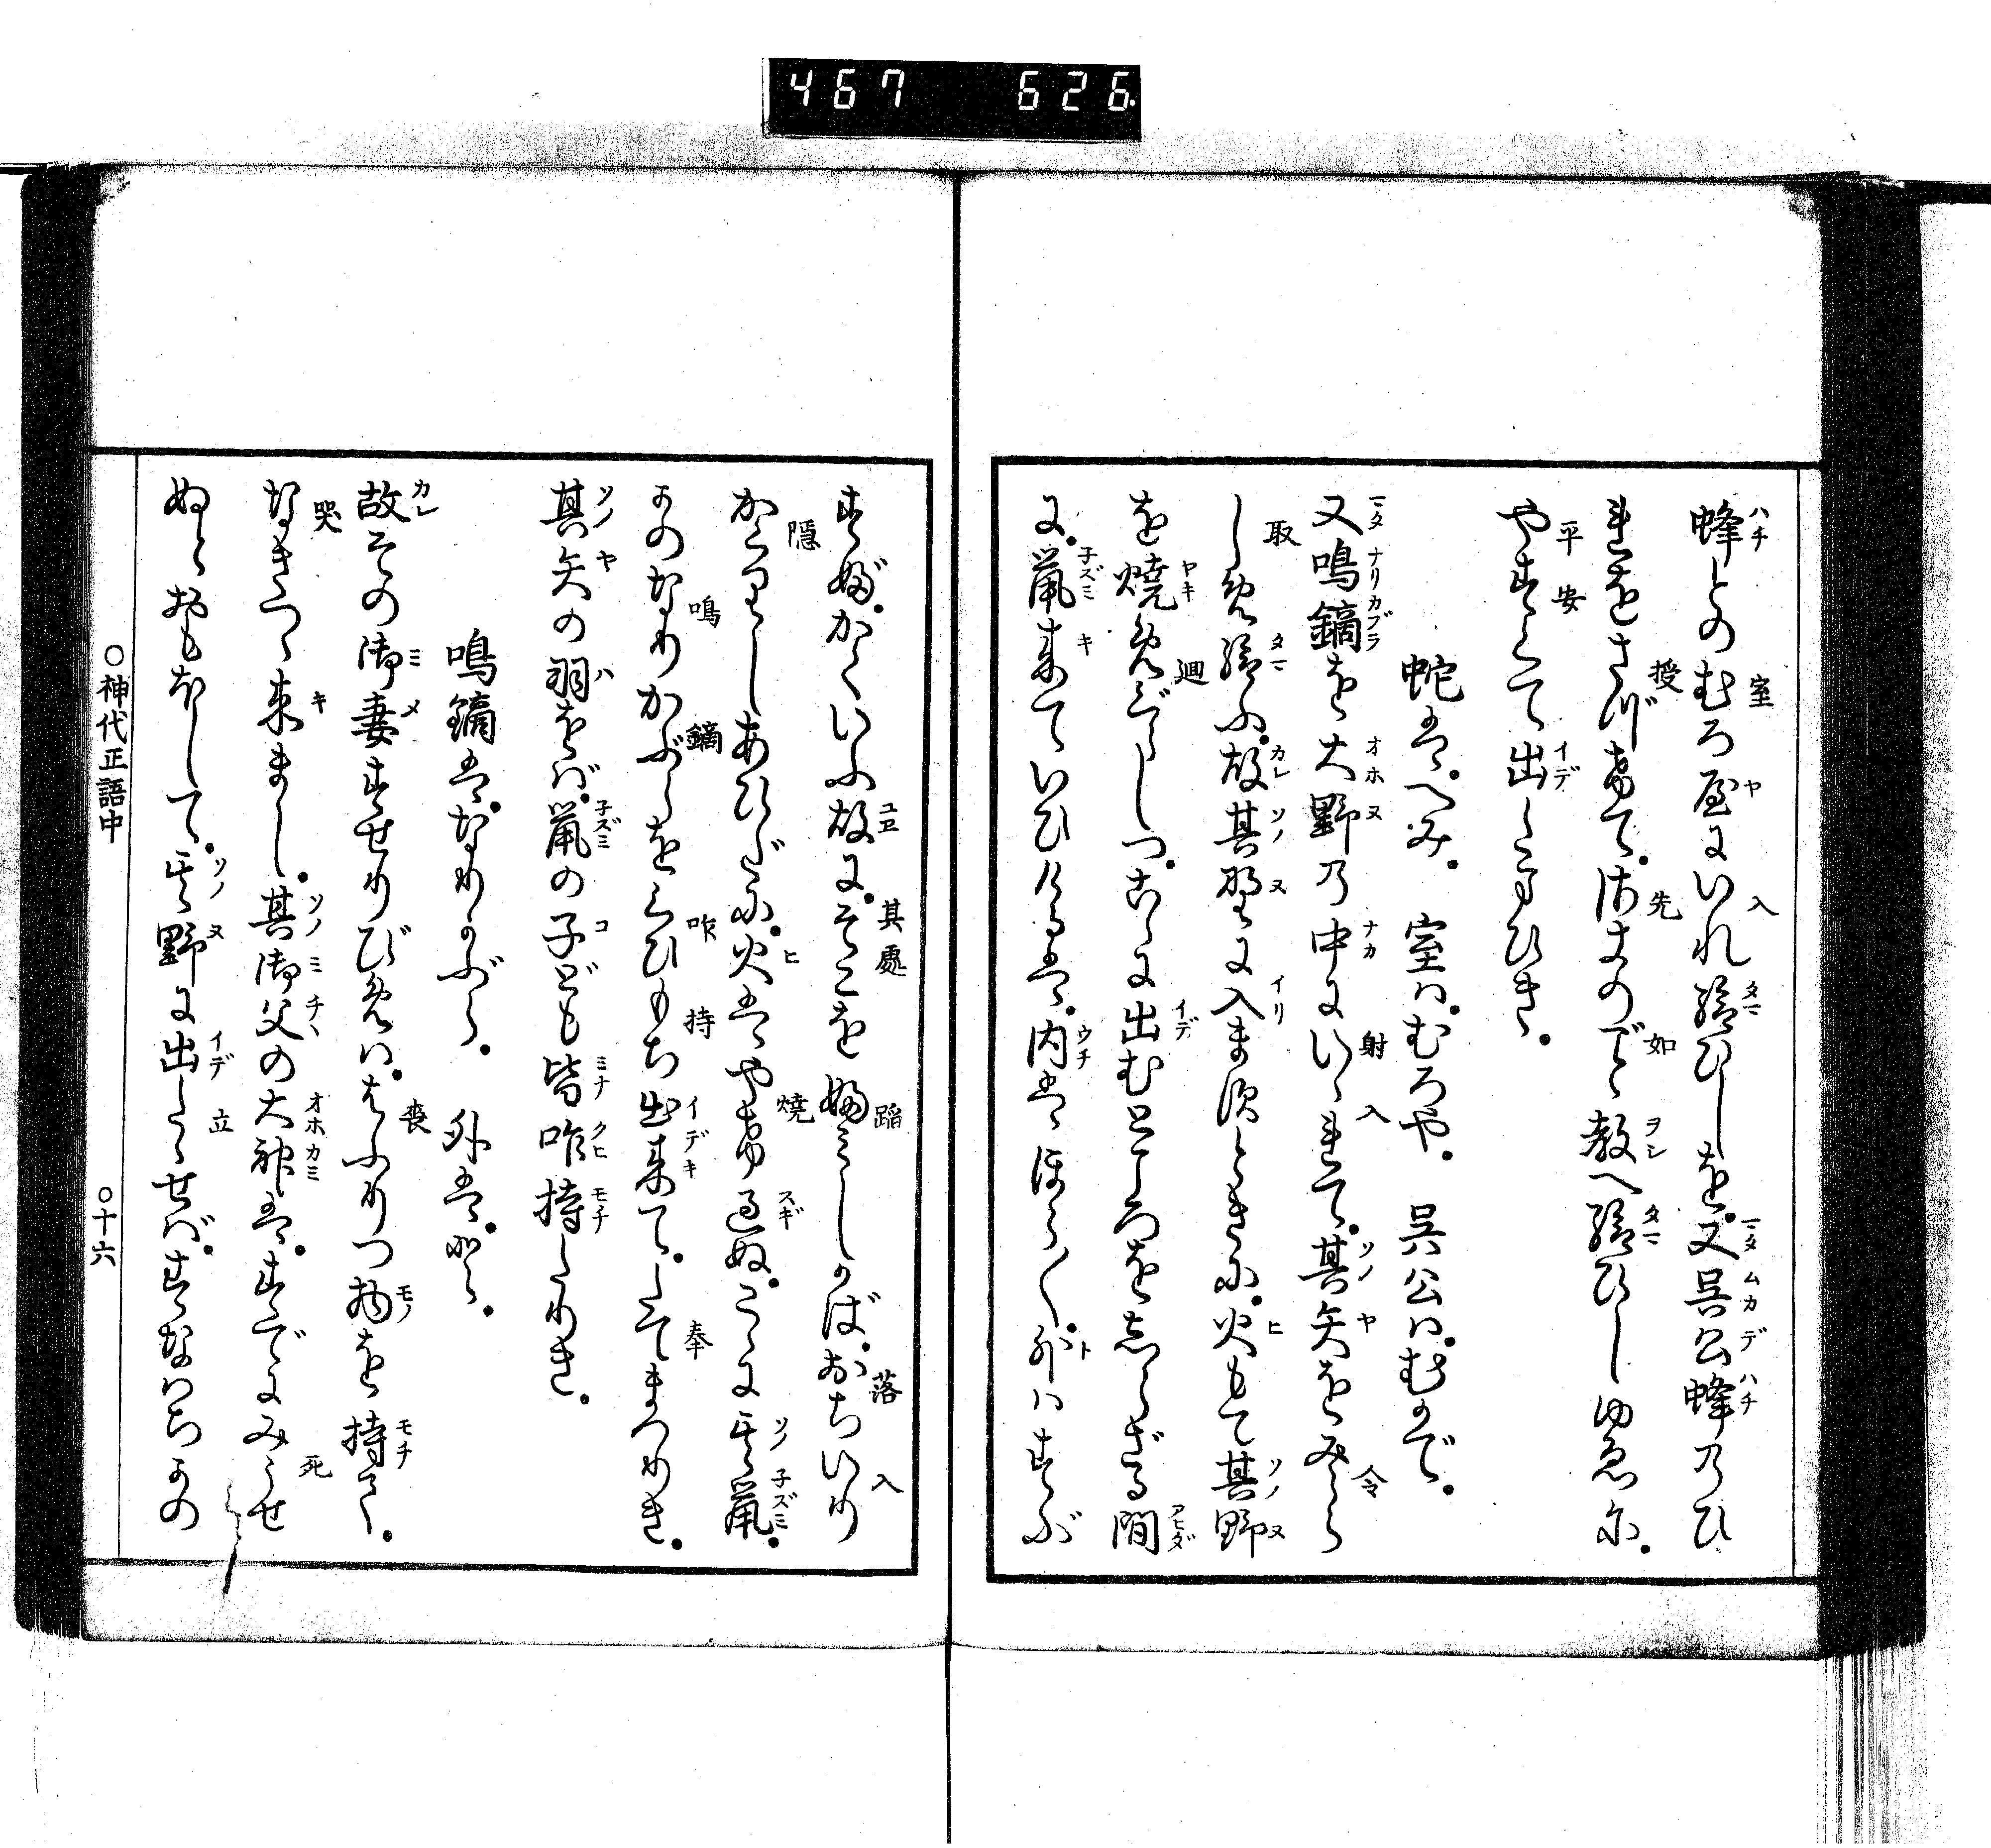 467 626.
蜂とのむろ屋にいれ給ひしを。又呉公蜂乃ひ
れをさづけて。はじめのごと教へ給ひしゆゑに。
やすくて出たまひき。
蛇は。へみ。 室は。むろや。 呉公は。むかで。
又鳴鏑を大野乃中にいいれて。其矢をとら
しめ給ふ。故其野に入ますときに。火もて其野
を焼めぐらしつ。こゝに出むところをしらざる間
に。鼠来ていひけるは。内はほら〳〵。外はすぶ
すぶ。かくいふ故に。そこを
ふみしかば。おちいり
かくりしあひだに。火はやけ過ぬ。こゝに其鼠。
かのなりかぶらをくひもち出来て。たてまつりき。
其矢の羽をば。鼠の子ども皆咋持たりき。
鳴鏑は。なりかぶら。 外は。と。
故その御妻すせりびめは。はふりつ物を持て。
なきつゝ来まし。其御父の大神は。すでにみうせ
ぬとおもほして。其野に出たゝせば。すなはちかの
○神代正語中 ○十六